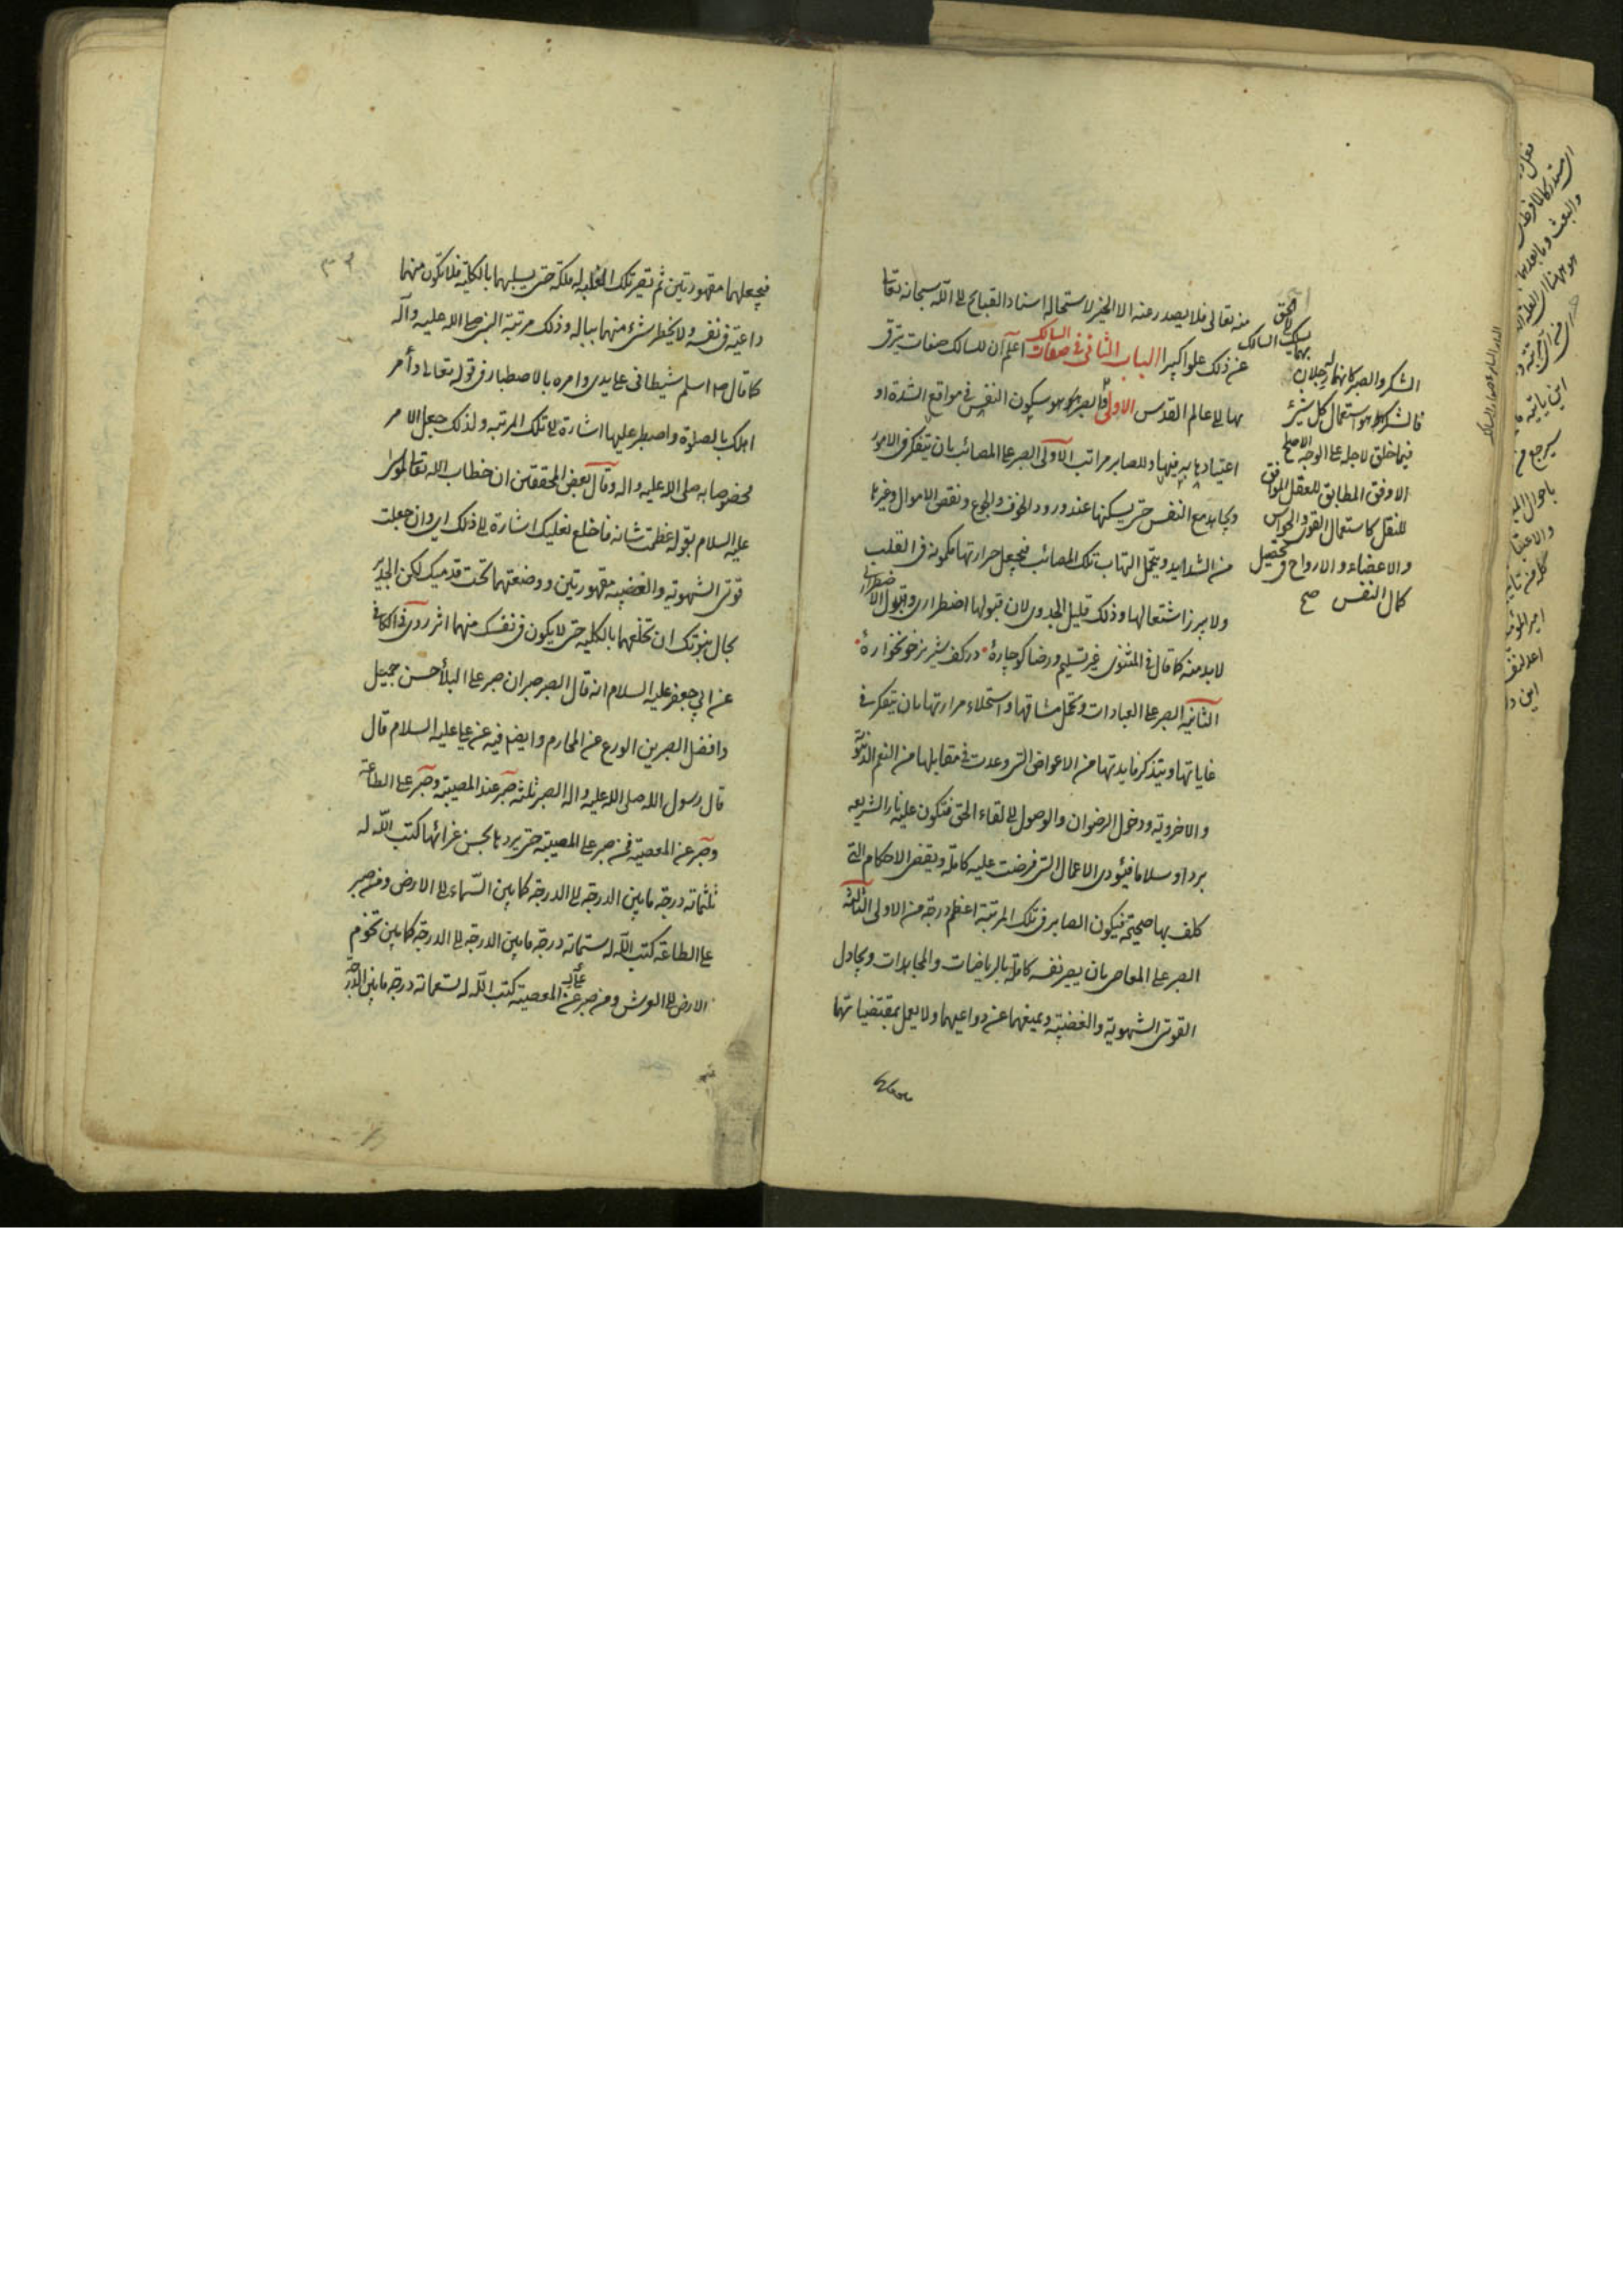 منه تعالى فلا يصدر عنه الا الخير لاستحالة اسناد القبايح الى الله سبحانه تعالى
عن ذلك علوا كبيرا الباب الثاني في صفات السالك اعلم ان للسالك صفات يترقى
بها الى عالم القدس الاولى الصبر هو سكون النفس في مواقع الشدة او
اعتيادها به فيها وللصابر مراتب الاولى الصبر على المصائب بان يتفكر في الامور
ويجاهد مع النفس حتى يسكنها عند ورود الخوف والجوع ونقص الاموال وغيرها
من الشدايد ويتحمل التهاب تلك المصائب فيجعل حرارتها مكمونة في القلب
ولا يبرز اشتعالها وذلك قليل الجدوى لان قبولها اضطراري وقبول الاضطراري
لابد منه كما قال في المثنوى غير تسليم ورضا كو چارهٔ در كف شير نر خونخوارهٔ
الثانية الصبر على العبادات وتحمل مشاقها واستحلاء مرارتها بان يتفكر في
غاياتها ويتذكر فايدتها من الاعواض التي وعدت في مقابلها من النعم الدنيوية
والاخروية ودخول الرضوان والوصول الى لقاء الحق فتكون عليه نار الشريعه
بردا وسلاما فيؤدى الاعمال التي فرضت عليه كاملة ويقضى الاحكام التي
كلف بها صحيحة فيكون الصابر في تلك المرتبة اعظم درجة من الاولى الثالثة
الصبر على المعاصى بان يصير نفسه كاملة بالرياضات والمجاهدات ويجادل
القوتى الشهوية والغضبية ويمنعهما عن دواعيهما ولا يعمل بمقتضياتهما
الشكر والصبر كانهما رجلان بهما يسلك السالك الى الحق
فالشكر هو استعمال كل شيء
فيما خلق لاجله على الوجه الاصلح
الاوفق المطابق للعقل الموافق
للنقل كاستعمال القوى والحواس
والاعضاء والارواح في تحصيل
كمال النفس صح
فيجعلهما مقهورتين ثم تصير تلك الغلبة له ملكة حتى يسلبهما بالكلية فلا تكون منهما
داعية في نفسه ولا يخطر شيء منهما بباله وذلك مرتبة النبي صلى الله عليه وآله
كما قال ص اسلم شيطانى على يدى وامره بالاصطبار في قوله تعالى وأمر
اهلك بالصلوة واصطبر عليها اشارة الى تلك المرتبة ولذلك جعل الامر
مخصوصا به صلى الله عليه واله وقال بعض المحققين ان خطاب الله تعالى لموسى
عليه السلام بقوله عظمت شانه فاخلع نعليك اشارة الى ذلك اي وان جعلت
قوتى الشهوية والغضبيه مقهورتين ووضعتهما تحت قدميك لكن الجدير
بحال نبوتك ان تخلعهما بالكليه حتى لا يكون في نفسك منهما اثر روى في الكافي
عن ابي جعفر عليه السلام انه قال الصبر صبران صبر على البلأ حسن جميل
وافضل الصبرين الورع عن المحارم وايضا فيه عن علي عليه السلام قال
قال رسول الله صلى الله عليه واله الصبر ثلثة صبر عند المصيبة وصبر على الطاعة
وصبر عن المعصية فمن صبر على المصيبة حتى يردها بحسن عزائها كتب الله له
ثلثمائة درجة ما بين الدرجة الى الدرجة كما بين السماء الى الارض ومن صبر
على الطاعة كتب الله له ستمائة درجة ما بين الدرجة الى الدرجة كما بين تخوم
الارض الى العرش ومن صبر عن المعصية كتب الله له تسعمائة درجة ما بين الدرجة